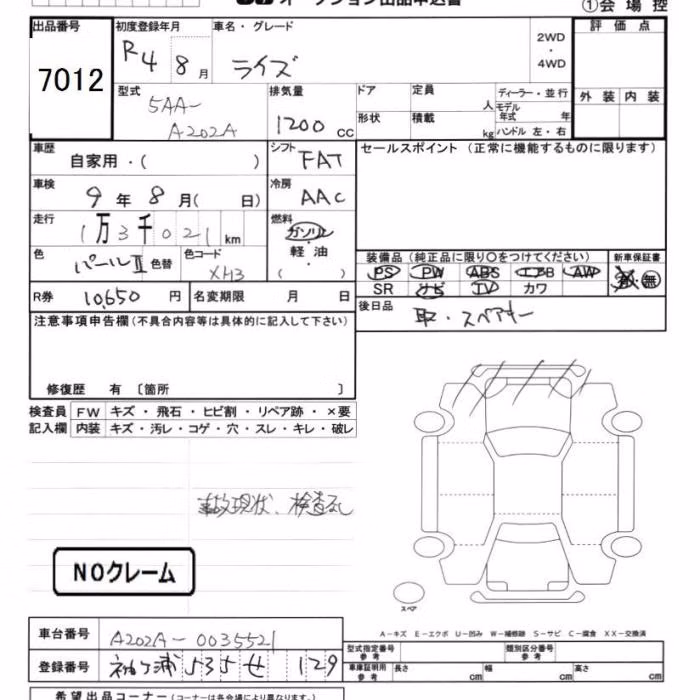 オークション出品申込書
①会場控
出品番号 7012
初度登録年月 R4 8月
車名・グレード ライズ
2WD・4WD
評価点
型式 5AA-A202A
排気量 1200 CC
ドア
定員 人
ディーラー・並行
モデル年式 年
形状
積載 kg
ハンドル 左・右
外装 内装
車歴 自家用・( )
シフト FAT
セールスポイント (正常に機能するものに限ります)
車検 9年8月( 日)
冷房 AAC
走行 1万3千021km
燃料 ガソリン・軽油・( )
色 パールII 色替
色コード XH3
装備品 (純正品に限り○をつけてください)
新車保証書
PS PW ABS エアB AW
有・無
SR ナビ TV カワ
R券 10,650円
名変期限 月 日
後日品 取・スペアキー
注意事項申告欄 (不具合内容等は具体的に記入して下さい)
修復歴 有 〔箇所 〕
検査員 FW キズ・飛石・ヒビ割・リペア跡・×要
記入欄 内装 キズ・汚レ・コゲ・穴・スレ・キレ・破レ
事故現状、検査なし
NOクレーム
スペア
A-キズ E-エクボ U-凹み W-補修跡 S-サビ C-腐食 XX-交換済
車台番号 A202A-0035521
型式指定番号
類別区分番号
登録番号 袖ヶ浦 535 せ 129
車庫証明用参考 長さ cm 幅 cm 高さ cm
希望出品コーナー (コーナーは各会場により異なります。)